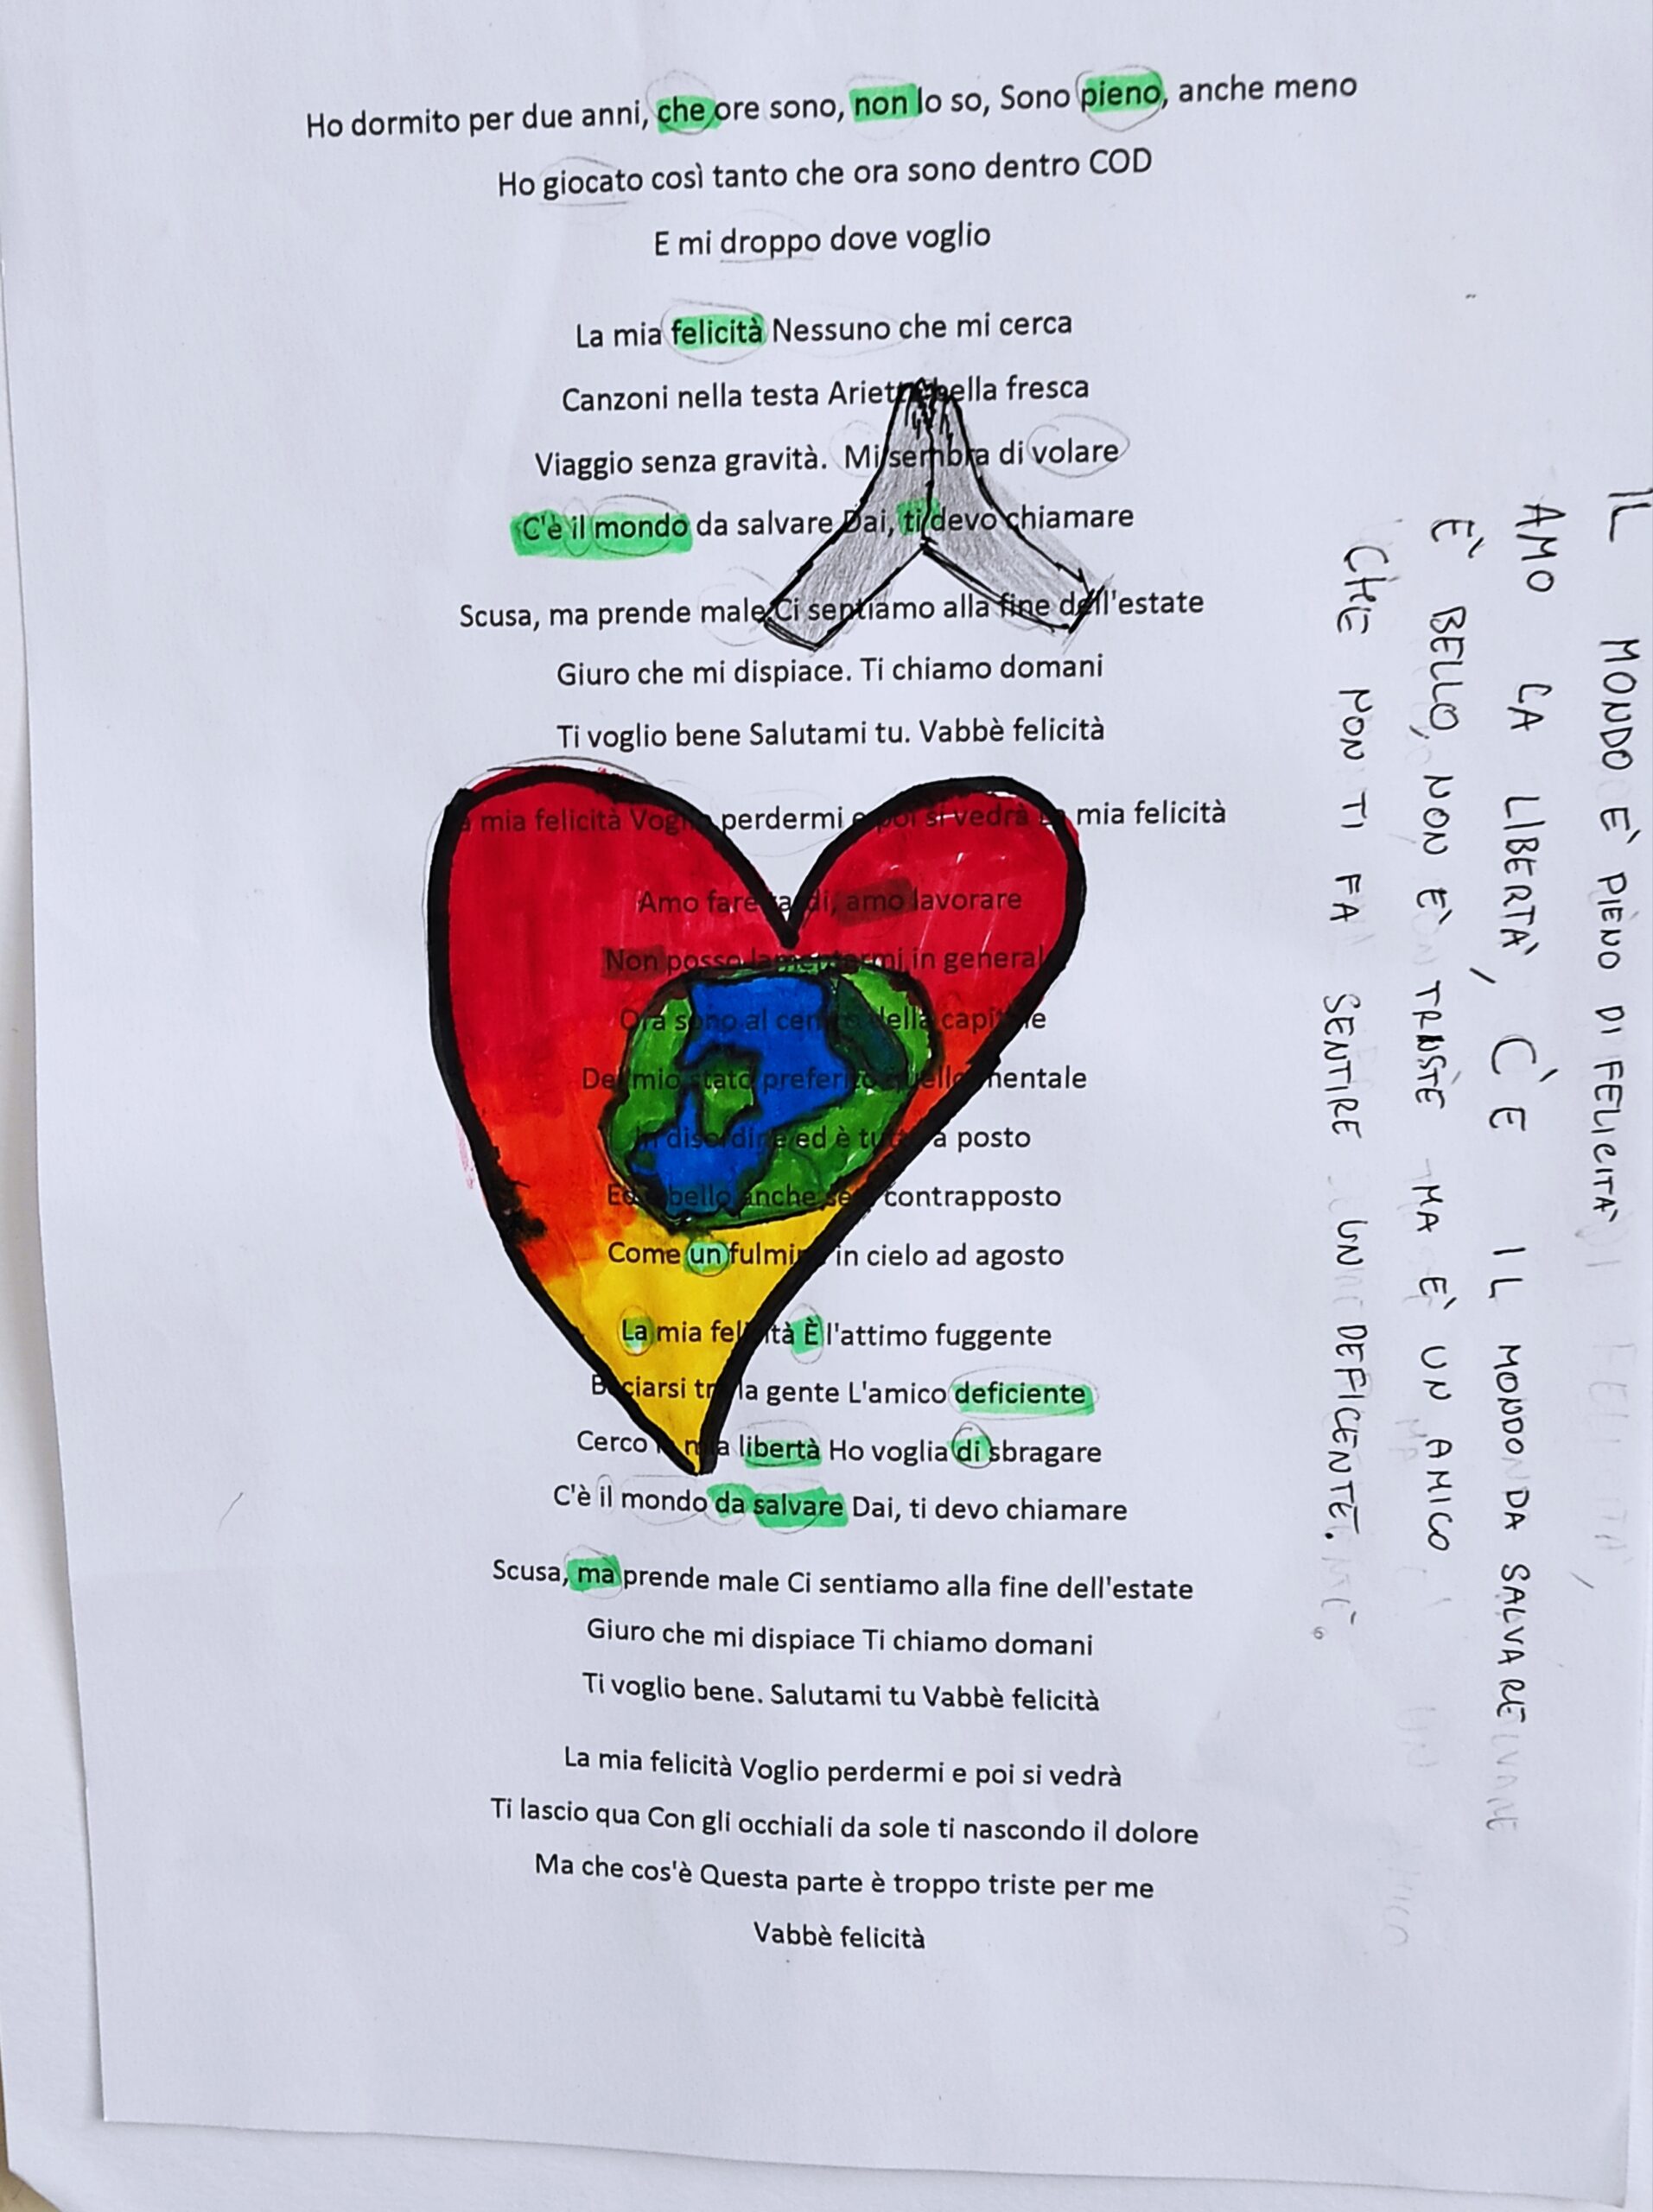 Ho dormito per due anni, che ore sono, non lo so, Sono pieno, anche meno
Ho giocato così tanto che ora sono dentro COD
E mi droppo dove voglio
La mia felicità Nessuno che mi cerca
Canzoni nella testa Arietta bella fresca
Viaggio senza gravità. Mi sembra di volare
C'è il mondo da salvare Dai, ti devo chiamare
Scusa, ma prende male Ci sentiamo alla fine dell'estate
Giuro che mi dispiace. Ti chiamo domani
Ti voglio bene Salutami tu. Vabbè felicità
mia felicità Voglio perdermi e poi si vedrà la mia felicità
Amo fare tardi, amo lavorare
Non posso lamentarmi in general
Ora sono al centro della capitale
Del mio stato preferito quello mentale
In disordine ed è tutto a posto
Ed è bello anche se è contrapposto
Come un fulmine in cielo ad agosto
La mia felicità È l'attimo fuggente
Baciarsi tra la gente L'amico deficiente
Cerco la mia libertà Ho voglia di sbragare
C'è il mondo da salvare Dai, ti devo chiamare
Scusa, ma prende male Ci sentiamo alla fine dell'estate
Giuro che mi dispiace Ti chiamo domani
Ti voglio bene. Salutami tu Vabbè felicità
La mia felicità Voglio perdermi e poi si vedrà
Ti lascio qua Con gli occhiali da sole ti nascondo il dolore
Ma che cos'è Questa parte è troppo triste per me
Vabbè felicità
IL MONDO E' PIENO DI FELICITA'
AMO LA LIBERTA', C'E IL MONDO DA SALVARE
E' BELLO, NON E' TRISTE MA E' UN AMICO
CHE NON TI FA SENTIRE UN DEFICENTE.